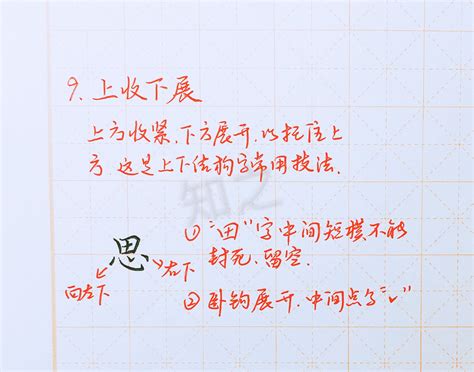 9. 上收下展
上方收紧.下方展开,以托住上
方.这是上下结构字常用技法.
知之
①“田”字中间短横不能
封死.留空.
思
向左下
右下
②卧钩展开.中间点了“✓”